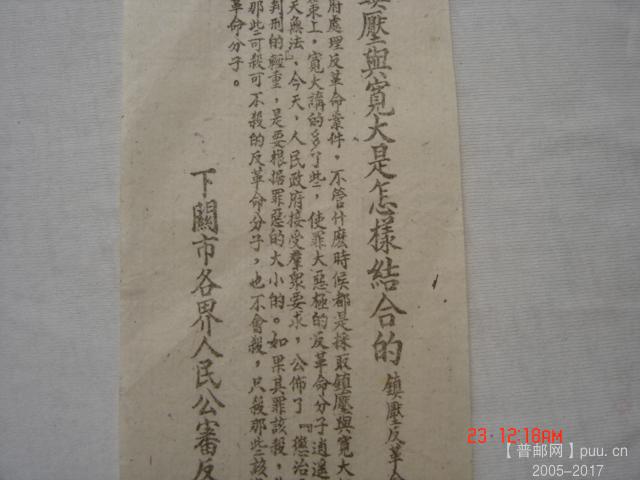 鎮壓與寬大是怎樣結合的
鎮壓反革命
府處理反革命案件，不管什麽時候都是採取鎮壓與寬大
策上，寬大講的多了些，使罪大惡極的反革命分子逍遥
天無法』，今天，人民政府接受羣衆要求，公佈了『懲治
判刑的輕重，是要根据罪惡的大小的。如果其罪該殺，
那些可殺可不殺的反革命分子，也不會殺，只殺那些該
革命分子。
下關市各界人民公審反
23 12:18AM
【普邮网】puu.cn
2005-2017